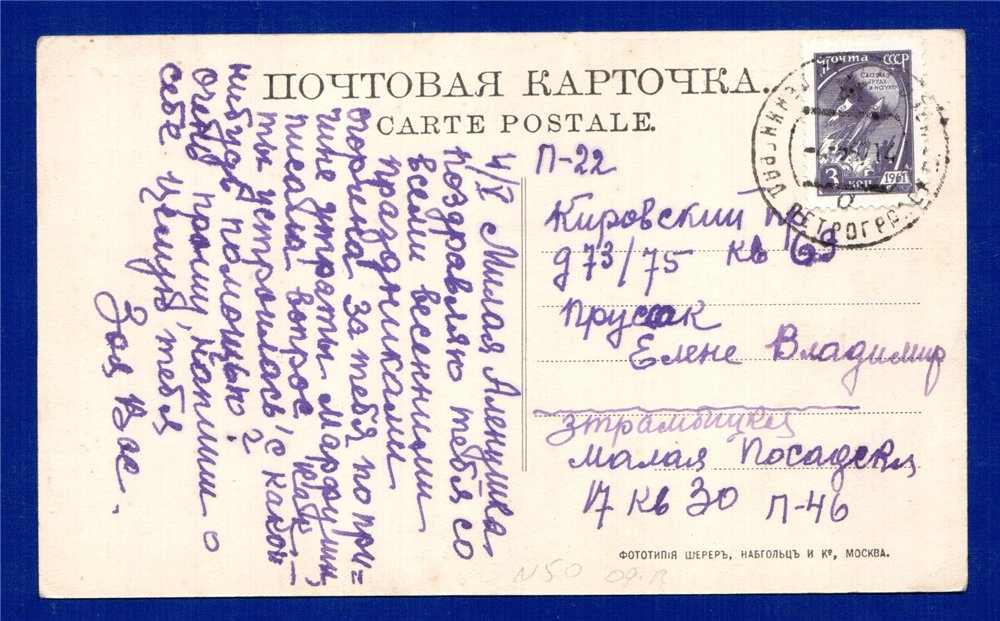 ПОЧТОВАЯ КАРТОЧКА.
CARTE POSTALE.
почта СССР
СЛАВА
ТРУДУ
И НАУКЕ
3 коп
1961
ЛЕНИНГРАД ПЕТРОГРАДСК
4/V Милая Аленушка,
поздравляю тебя со
всеми весенними
праздниками
огорчена за тебя по при=
чине утраты Марфуши,
писала вопрос, как
ты устроилась, с какой-
нибудь помощью?
Очень прошу, напиши о
себе Целую тебя
Зоя Вас.
П-22
Кировский п
д 73/75 кв 69
Прусак
Елене Владимир
Малая Посадская
17 кв 30 П-46
ФОТОТИПІЯ ШЕРЕРЪ, НАБГОЛЬЦЪ И Кº, МОСКВА.
N50 09.В